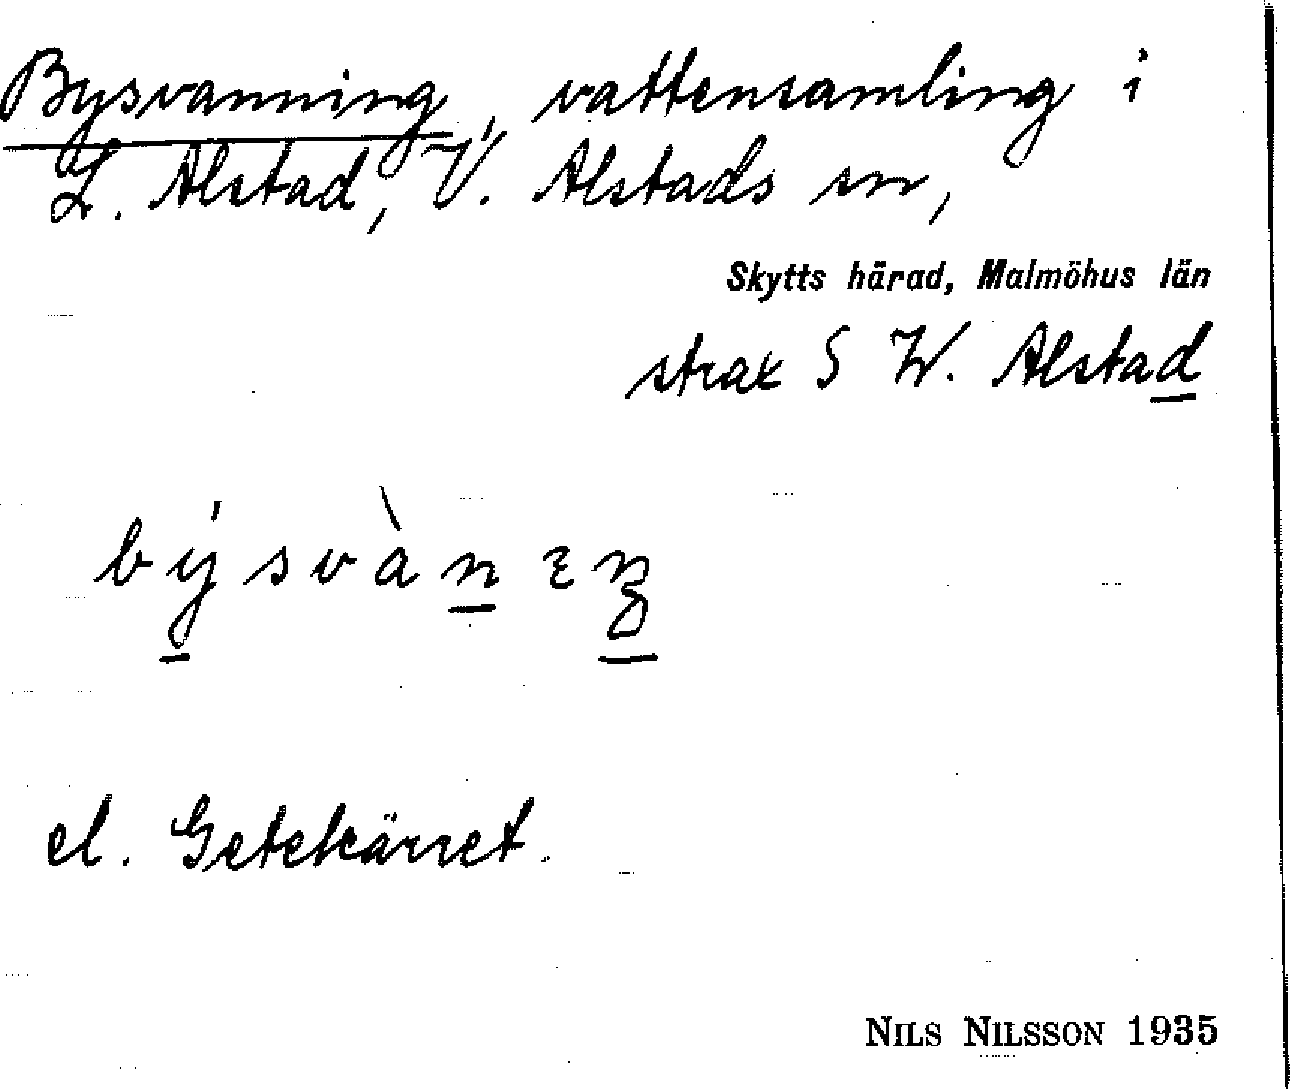 Bysvanning, vattensamling i
L. Alstad, V. Alstads sn,
Skytts härad, Malmöhus län
strax S W. Alstad
býsvànɛŋ
el. Getekärret.
NILS NILSSON 1935